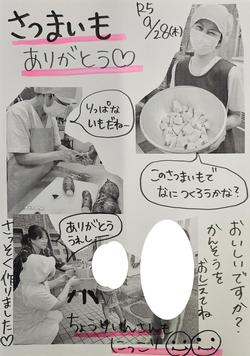 さつまいも
ありがとう♡
R5
9/28(木)
りっぱな
いもだねー
このさつまいもで
なにつくろうかな?
ありがとう
うれしー
おいしいですか?
かんそうを
おしえてね
さっそく作りました♡
にっこり